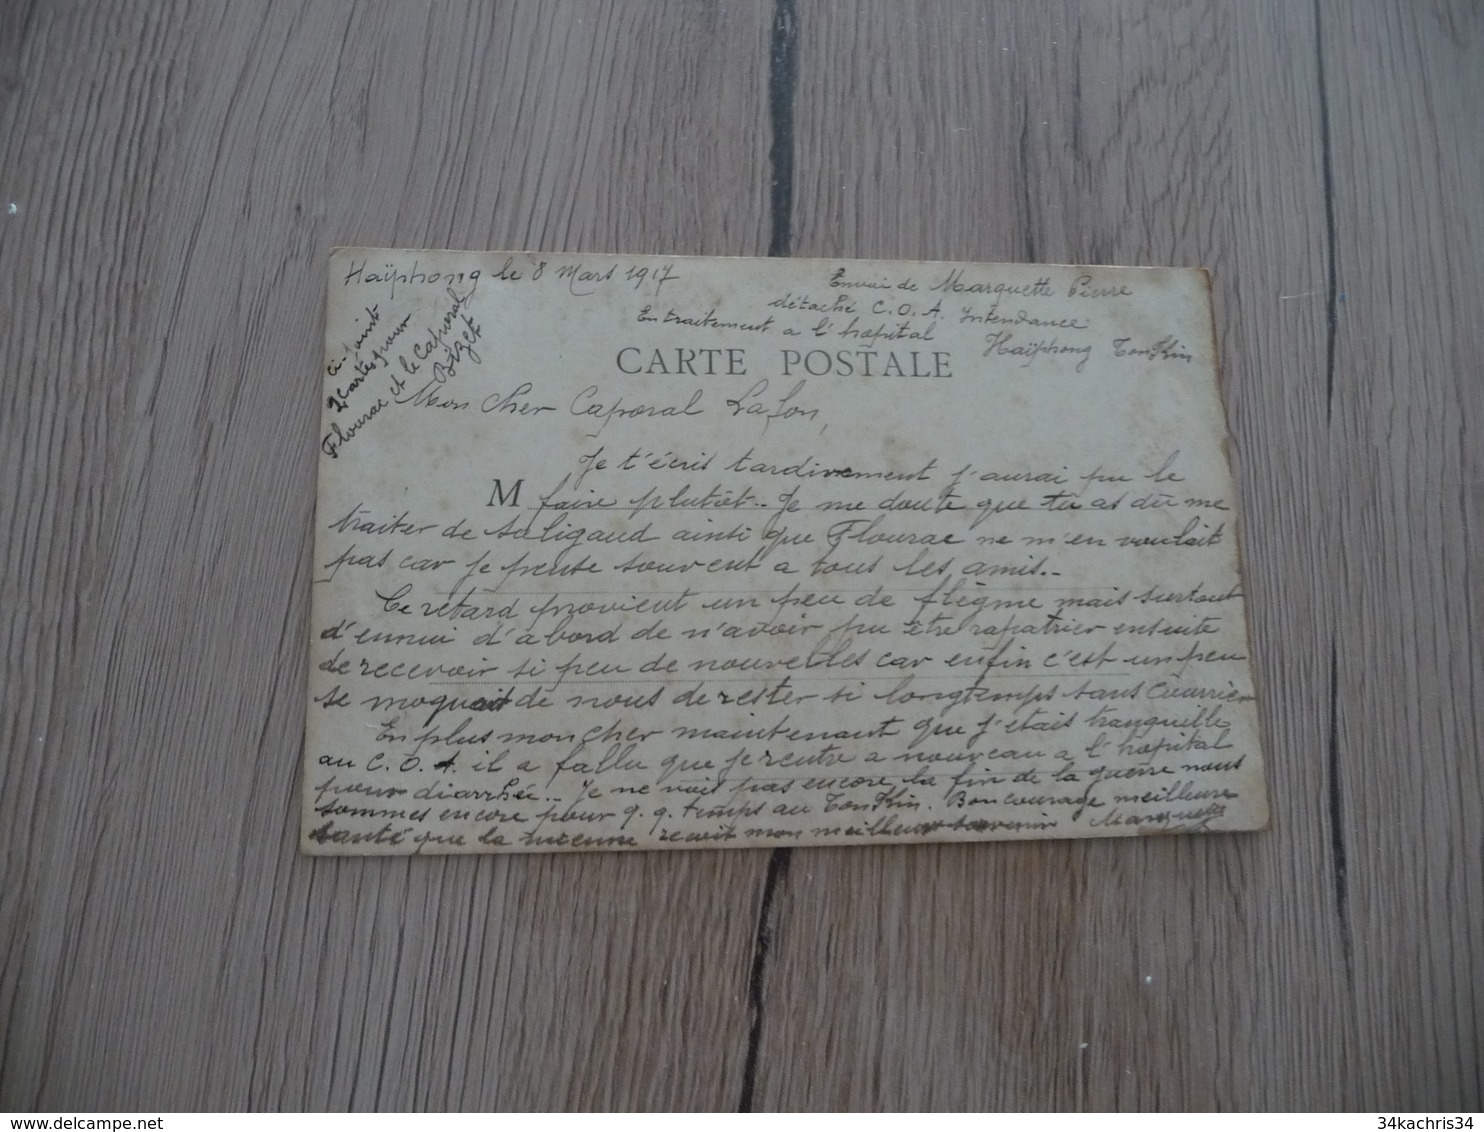 Haïphong le 8 Mars 1917
Envoi de Marquette Pierre
détaché C.O.A. Intendance
En traitement a l'hôpital
Haïphong TonKin
ci-joint
2 cartes pour
Flourac et le Caporal
Bizet
CARTE POSTALE
Mon Cher Caporal Lafon,
Je t'écris tardivement j'aurai pu le
M
faire plutôt.. Je me doute que tu as du me
traiter de saligaud ainsi que Flourac ne m'en voulait
pas car je pense souvent a tous les amis..
Ce retard provient un peu de flègme mais surtout
d'ennui d'abord de n'avoir pu être rapatrier ensuite
de recevoir si peu de nouvelles car enfin c'est un peu
se moquait de nous de rester si longtemps sans Courrier
En plus mon cher maintenant que j'étais tranquille
au C.O.A. il a fallu que je rentre a nouveau a l'hopital
pour diarrhée.. Je ne vois pas encore la fin de la guerre nous
sommes encore pour q.q. temps au TonKin. Bon courage meilleure
santé que la mienne reçoit mon meilleur souvenir Marquette
34kachris34
34kachris34